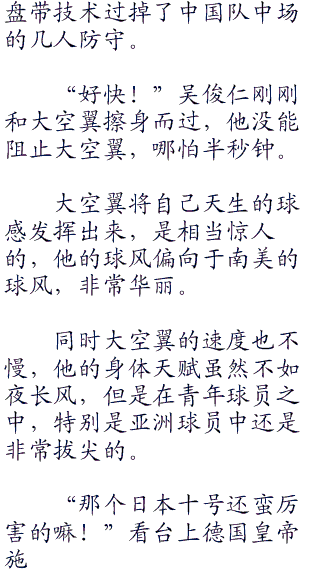 盘带技术过掉了中国队中场
的几人防守。
“好快！”吴俊仁刚刚
和大空翼擦身而过，他没能
阻止大空翼，哪怕半秒钟。
大空翼将自己天生的球
感发挥出来，是相当惊人
的，他的球风偏向于南美的
球风，非常华丽。
同时大空翼的速度也不
慢，他的身体天赋虽然不如
夜长风，但是在青年球员之
中，特别是亚洲球员中还是
非常拔尖的。
“那个日本十号还蛮厉
害的嘛！”看台上德国皇帝
施